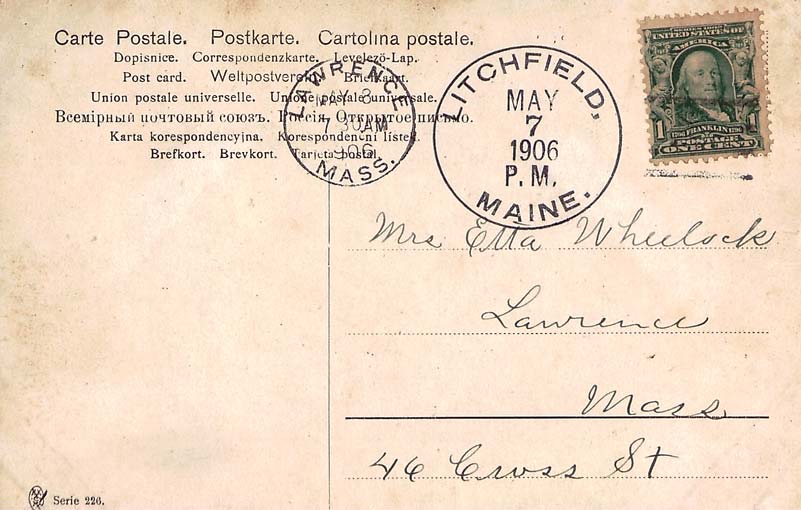 Carte Postale. Postkarte. Cartolina postale.
Dopisnice. Correspondenzkarte. Levelező-Lap.
Post card. Weltpostverein. Briefkaart.
Union postale universelle. Unione postale universale.
Всемірный почтовый союзъ. Россія. Открытое письмо.
Karta korespondencyjna. Korespondenční listek.
Brefkort. Brevkort. Tarjeta postal.
LAWRENCE
MAY 8
7 30 AM
1906
MASS.
LITCHFIELD,
MAY
7
1906
P.M.
MAINE.
UNITED STATES OF
AMERICA
FRANKLIN
1 POSTAGE 1
ONE CENT
Mrs Etta Wheelock
Lawrence
Mass
46 Cross St
Serie 226.